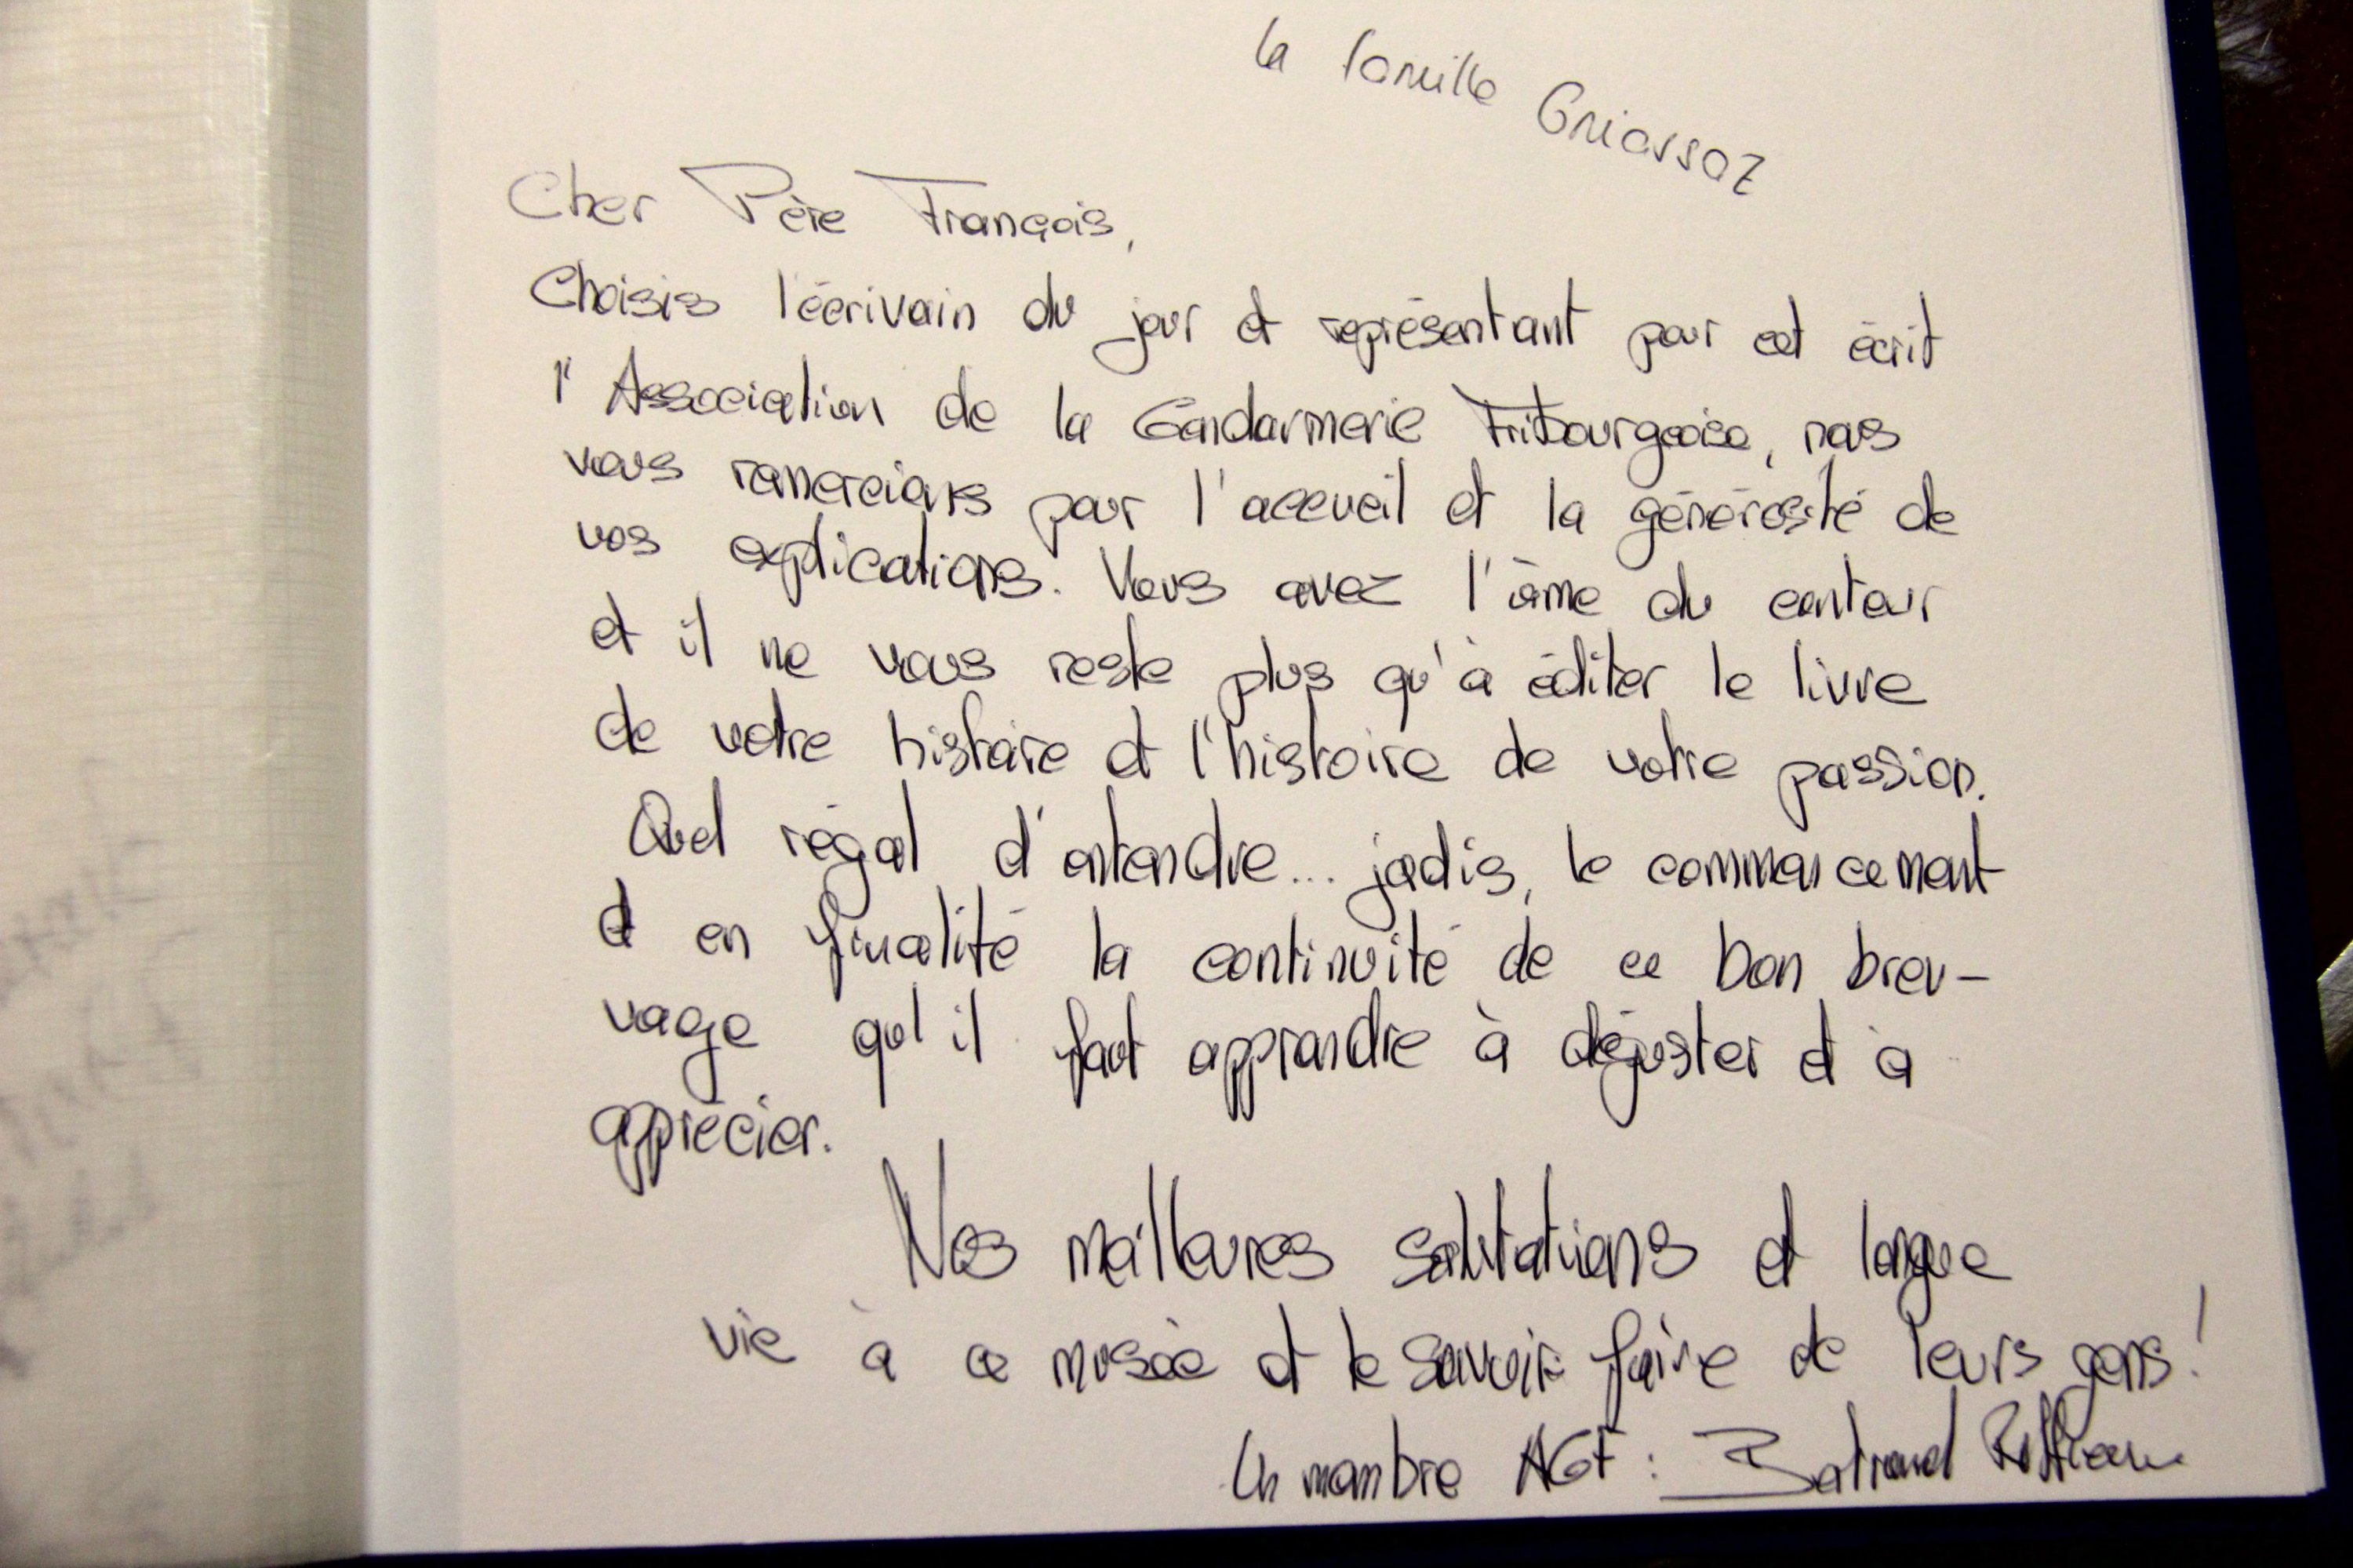 la famille
Cher Père François,
Choisis l'écrivain du jour et représentant pour cet écrit
l'Association de la Gendarmerie Fribourgeoise, nous
vous remercions pour l'accueil et la générosité de
vos explications. Vous avez l'âme du conteur
et il ne vous reste plus qu'à éditer le livre
de votre histoire et l'histoire de votre passion.
Quel régal d'entendre... jadis, le commencement
et en finalité la continuité de ce bon breu-
vage qu'il faut apprendre à déguster et à
apprécier.
Nos meilleures salutations et longue
vie à ce musée et le savoir faire de leurs gens!
Un membre AGF :